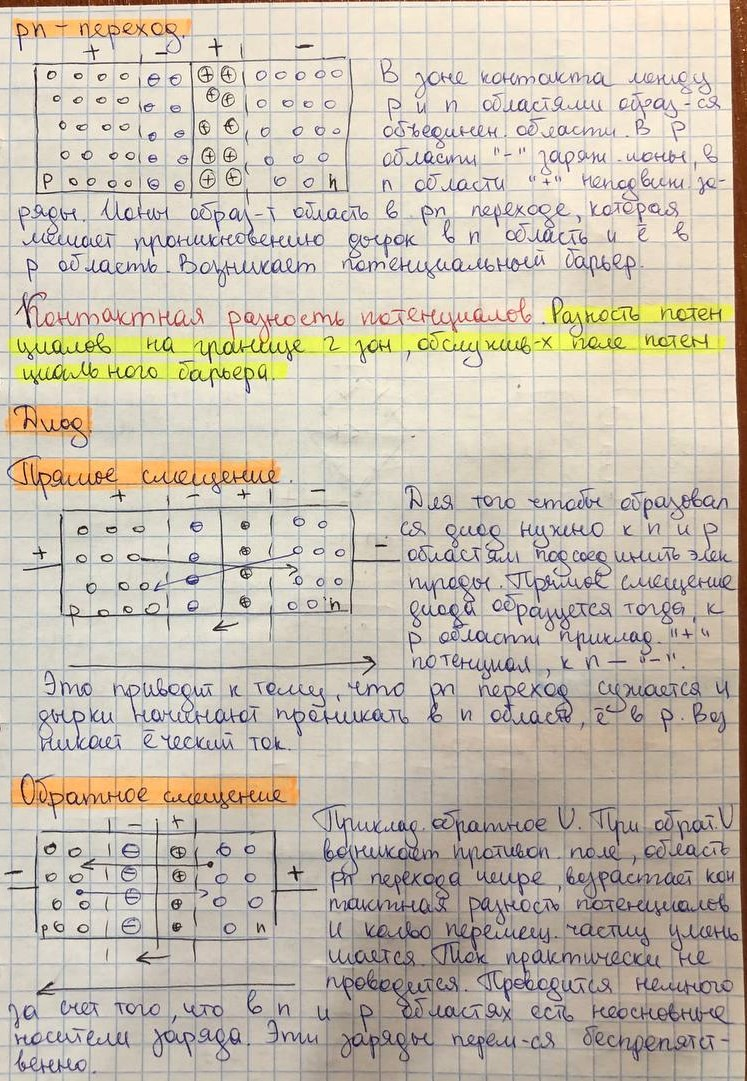 pn - переход.
+ - + -
В зоне контакта между
p и n областями образ-ся
объединен. области. В p
области "-" заряж. ионы, в
n области "+" неподвиж. за-
p n
ряды. Ионы образ-т область в pn переходе, которая
мешает проникновению дырок в n область и ē в
p область. Возникает потенциальный барьер.
Контактная разность потенциалов. Разность потен
циалов на границе 2 зон, обслужив-х поле потен
циального барьера.
Диод.
Прямое смещение.
+ - + -
Для того чтобы образовал
ся диод нужно к n и p
+ -
областям подсоединить элек
троды. Прямое смещение
диода образуется тогда, к
p n
p области приклад. "+"
потенциал, к n - "-".
Это приводит к тому, что pn переход сужается и
дырки начинают проникать в n область, ē в p. Воз
никает ēческий ток.
Обратное смещение
- +
Приклад. обратное U. При обрат. U
возникает противоп. поле, область
- +
pn перехода шире, возрастает кон
тактная разность потенциалов
p n
и кол-во перемещ. частиц умень
шается. Ток практически не
проводится. Проводится немного
за счет того, что в n и p областях есть неосновные
носители заряда. Эти заряды перем-ся беспрепятст-
венно.